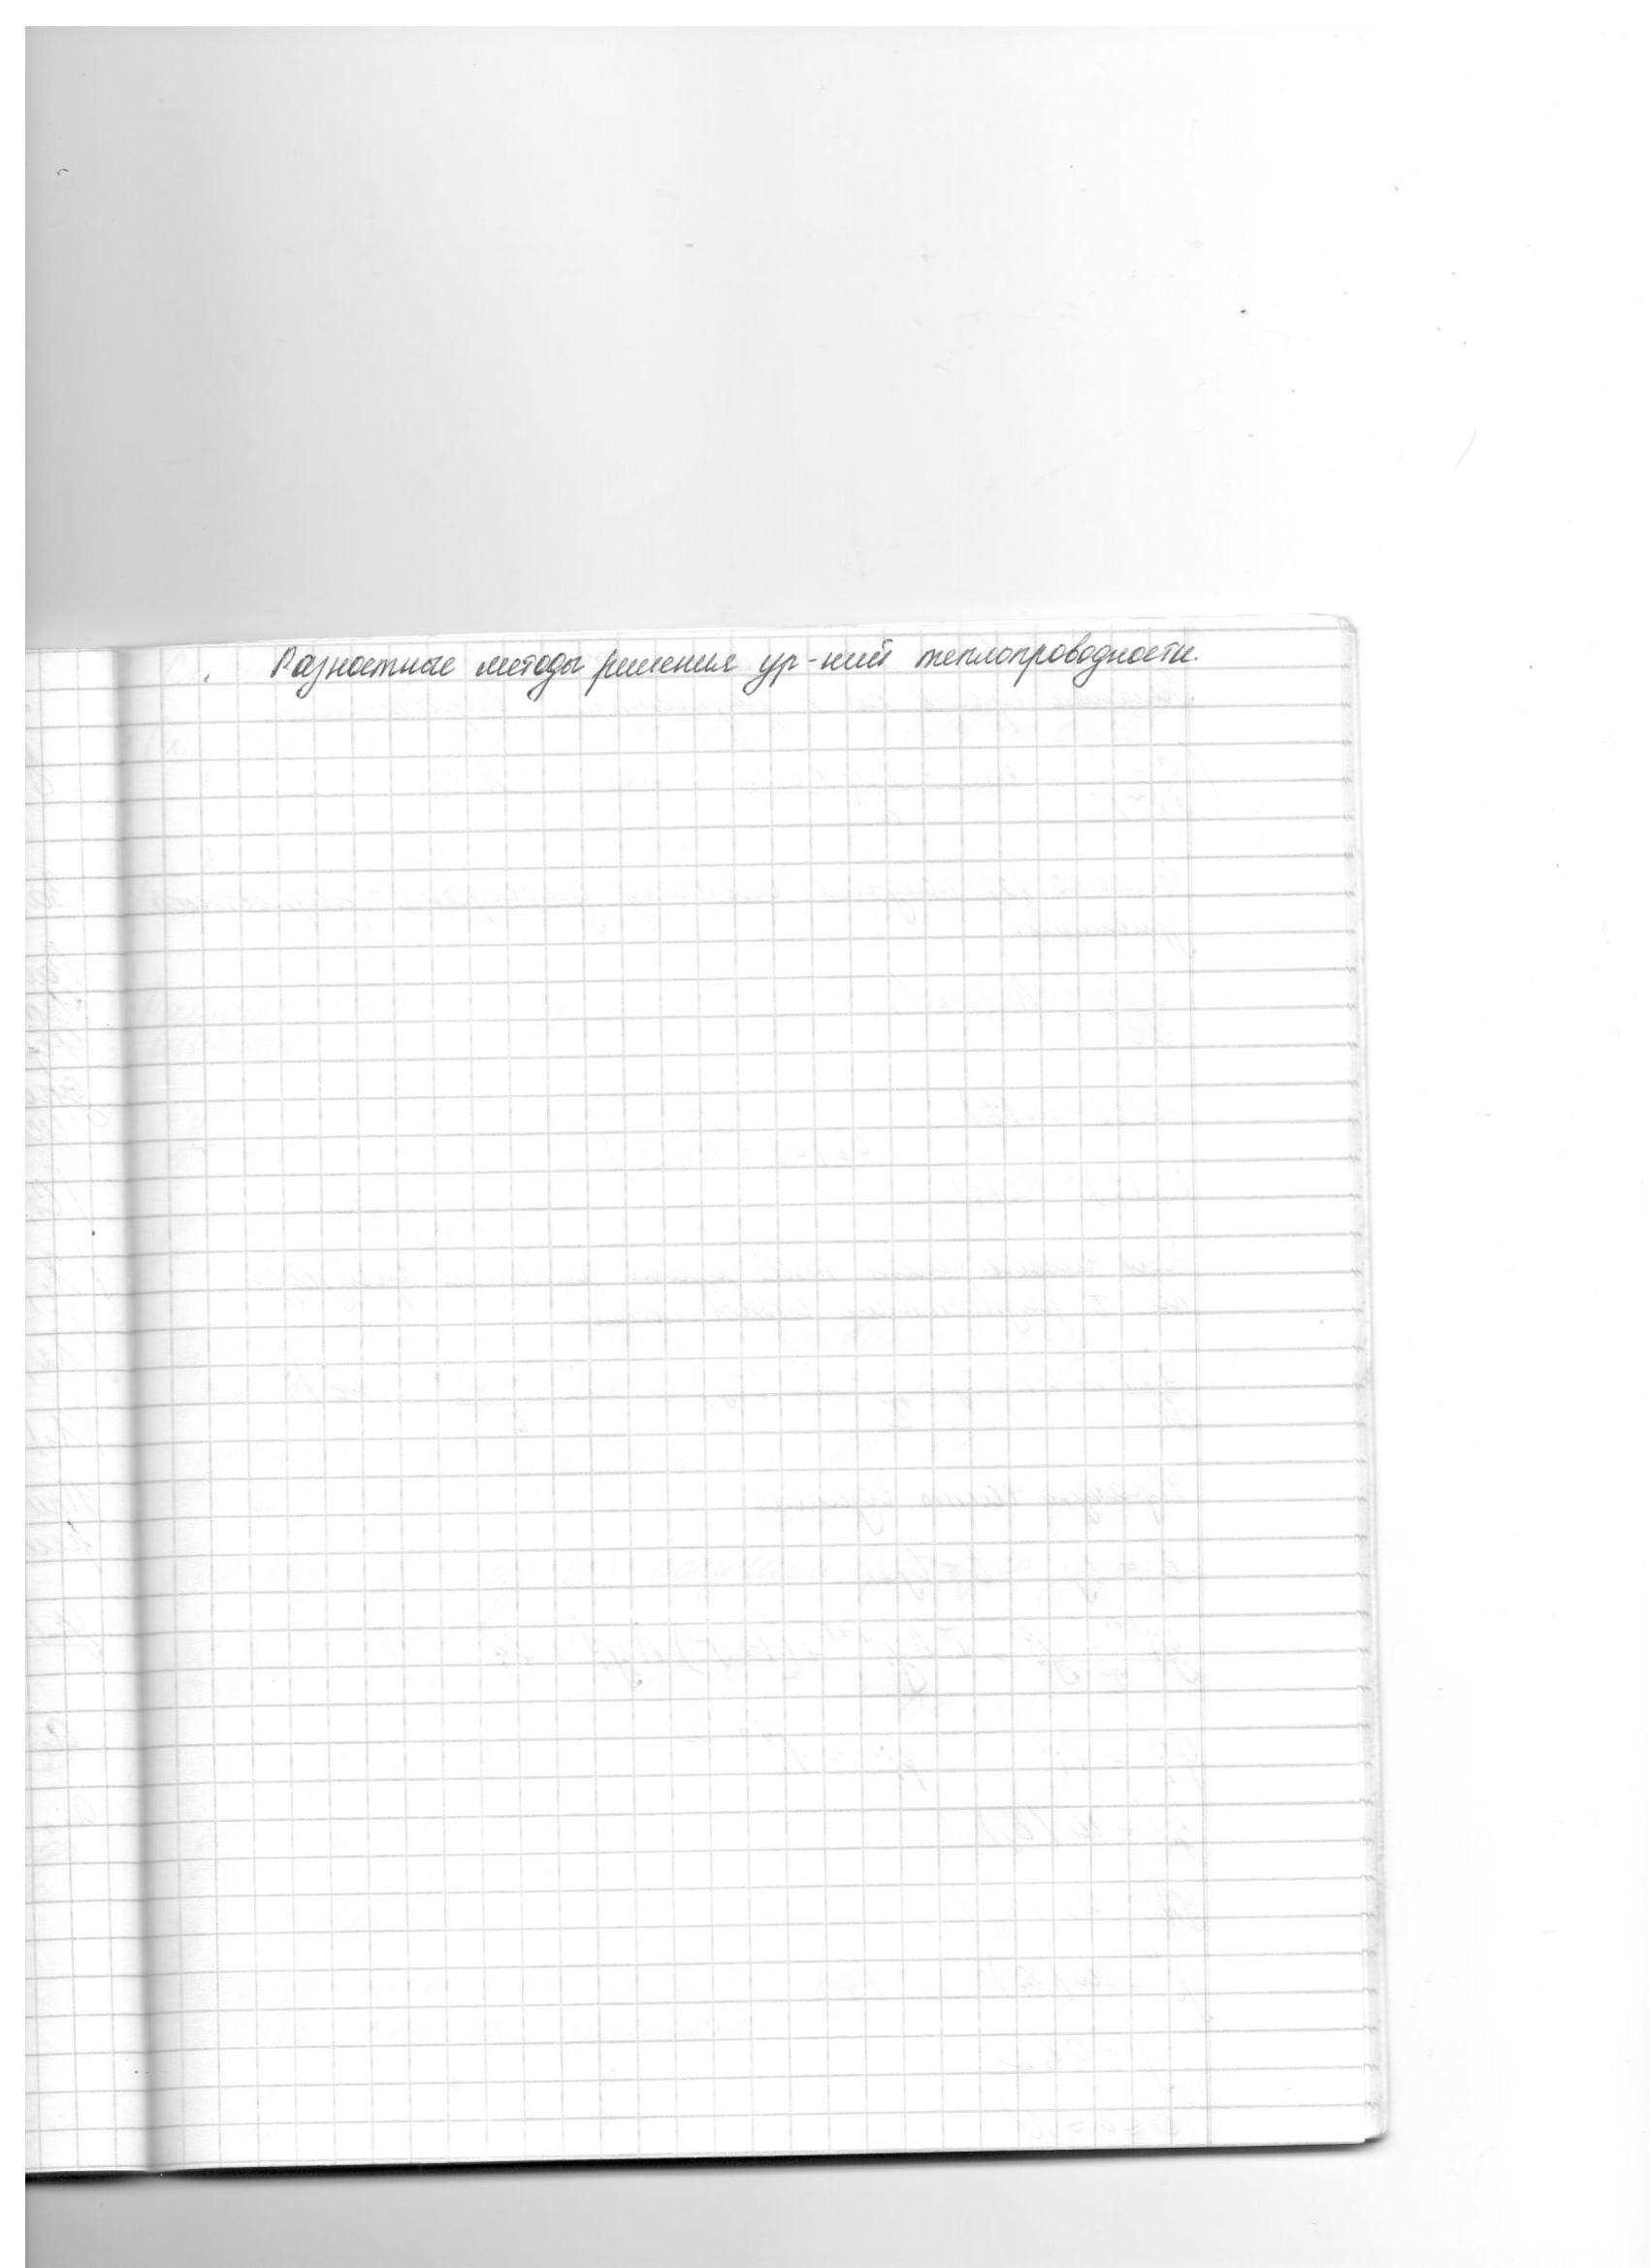 Разностные методы решения ур-ний теплопроводности.